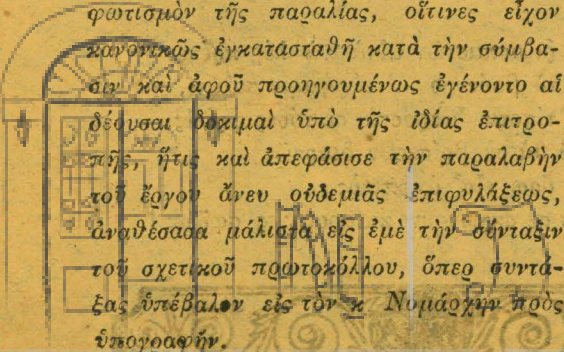 φωτισμὸν τῆς παραλίας, οἵτινες εἶχον
κανονικῶς ἐγκατασταθῆ κατὰ τὴν σύμβα-
σιν καὶ ἀφοῦ προηγουμένως ἐγένοντο αἱ
δέουσαι δοκιμαὶ ὑπὸ τῆς ἰδίας ἐπιτρο-
πῆς, ἥτις καὶ ἀπεφάσισε τὴν παραλαβὴν
τοῦ ἔργου ἄνευ οὐδεμιᾶς ἐπιφυλάξεως,
ἀναθέσασα μάλιστα εἰς ἐμὲ τὴν σύνταξιν
τοῦ σχετικοῦ πρωτοκόλλου, ὅπερ συντά-
ξας ὑπέβαλον εἰς τὸν κ Νομάρχην πρὸς
ὑπογραφήν.